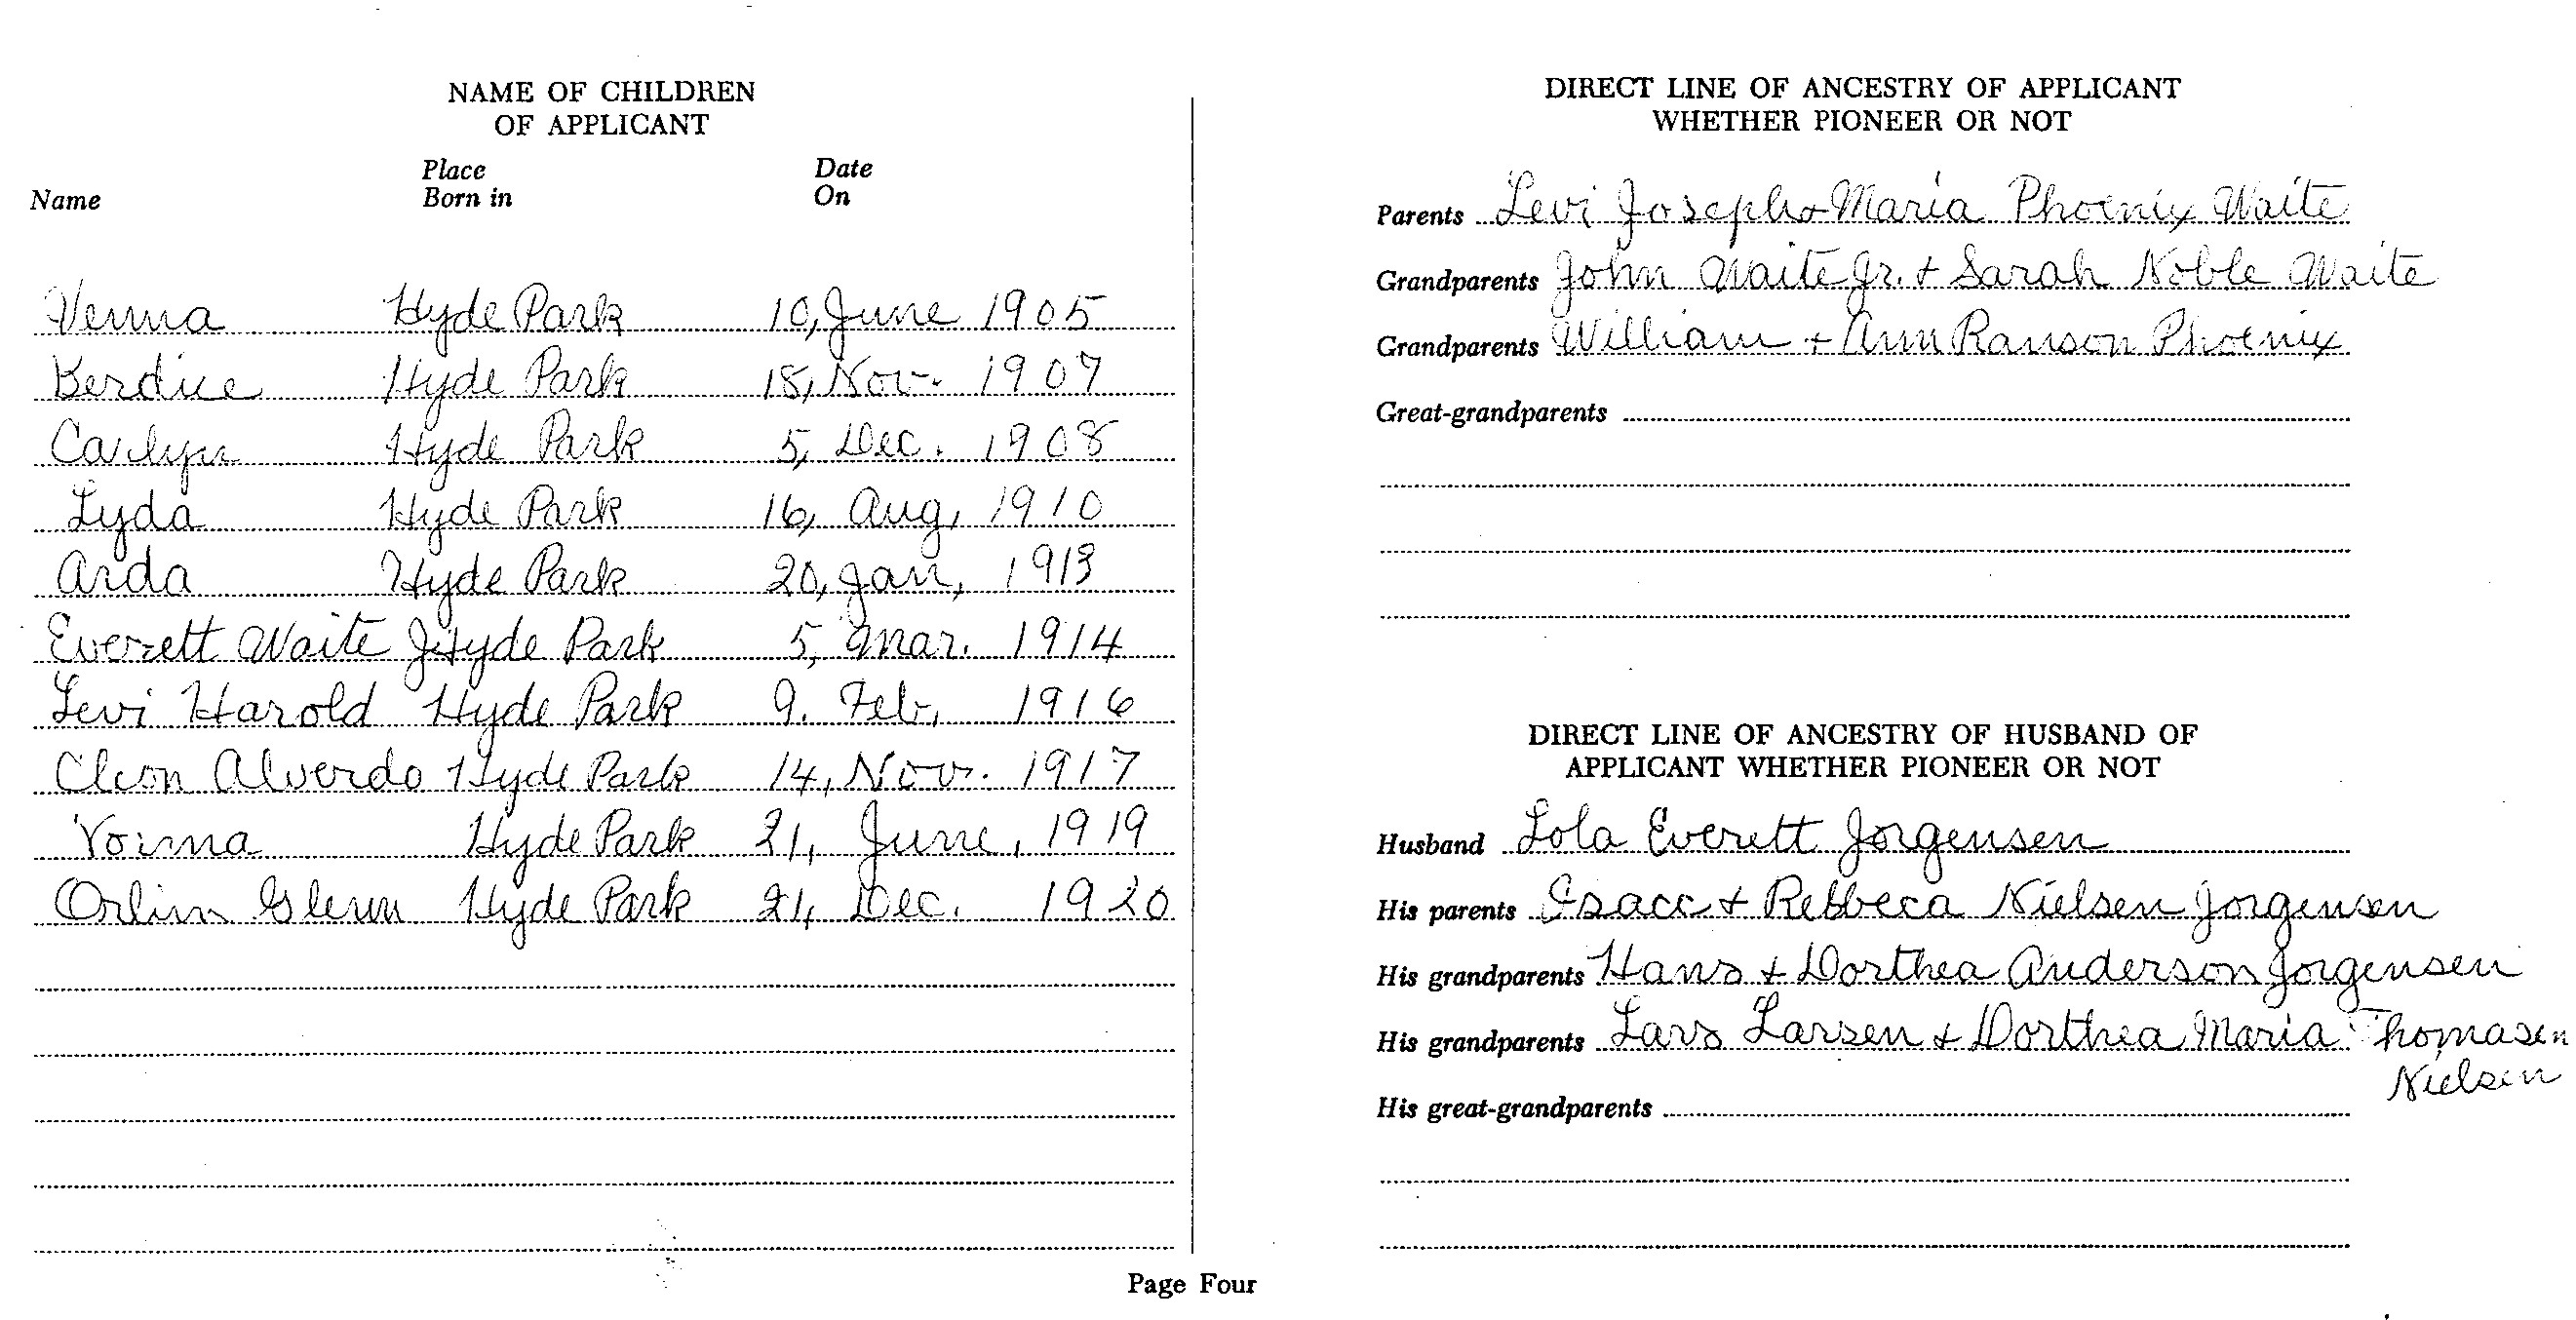 NAME OF CHILDREN
OF APPLICANT
Name Place Born in Date On
Venna Hyde Park 10, June 1905
Berdice Hyde Park 18, Nov. 1907
Carlyn Hyde Park 5, Dec. 1908
Lyda Hyde Park 16, Aug, 1910
Arda Hyde Park 20, Jan, 1913
Everett Waite J Hyde Park 5, Mar. 1914
Levi Harold Hyde Park 9. Feb, 1916
Cleon Alverdo Hyde Park 14, Nov. 1917
Hyde Park 21, June, 1919
Orlin Glenn Hyde Park 21, Dec. 1920
DIRECT LINE OF ANCESTRY OF APPLICANT
WHETHER PIONEER OR NOT
Parents Levi Joseph & Maria Phoenix Waite
Grandparents John Waite Jr. + Sarah Noble Waite
Grandparents William + Ann Ranson Phoenix
Great-grandparents
DIRECT LINE OF ANCESTRY OF HUSBAND OF
APPLICANT WHETHER PIONEER OR NOT
Husband Lola Everett Jorgensen
His parents Isacc + Rebbeca Nielsen Jorgensen
His grandparents Hans + Dorthea Anderson Jorgensen
His grandparents Lars Larsen + Dorthea Maria Thomasen
Nielsen
His great-grandparents
Page Four